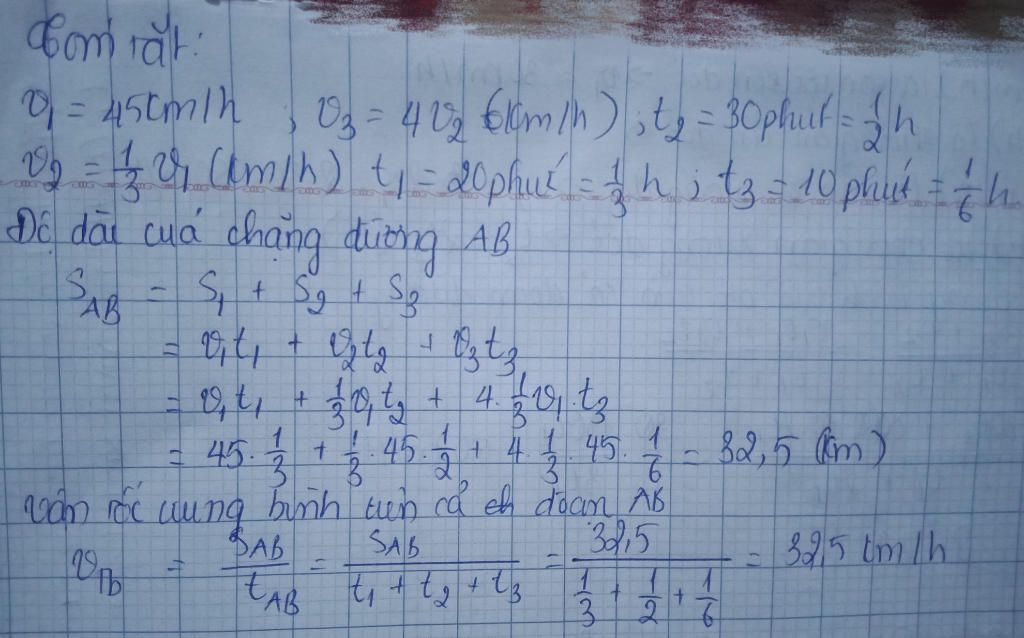 Tóm tắt:
v₁ = 45km/h ; v₃ = 4v₂ (km/h) ; t₂ = 30 phút = 1/2 h
v₂ = 1/3 v₁ (km/h) t₁ = 20 phút = 1/3 h ; t₃ = 10 phút = 1/6 h
Độ dài của chặng đường AB
S_AB = S₁ + S₂ + S₃
= v₁t₁ + v₂t₂ + v₃t₃
= v₁t₁ + 1/3 v₁t₂ + 4. 1/3 v₁.t₃
= 45. 1/3 + 1/3 .45. 1/2 + 4. 1/3 .45. 1/6 = 32,5 (km)
Vận tốc trung bình trên cả đoạn AB
v_Tb = S_AB / t_AB = S_AB / (t₁ + t₂ + t₃) = 32,5 / (1/3 + 1/2 + 1/6) = 32,5 km/h